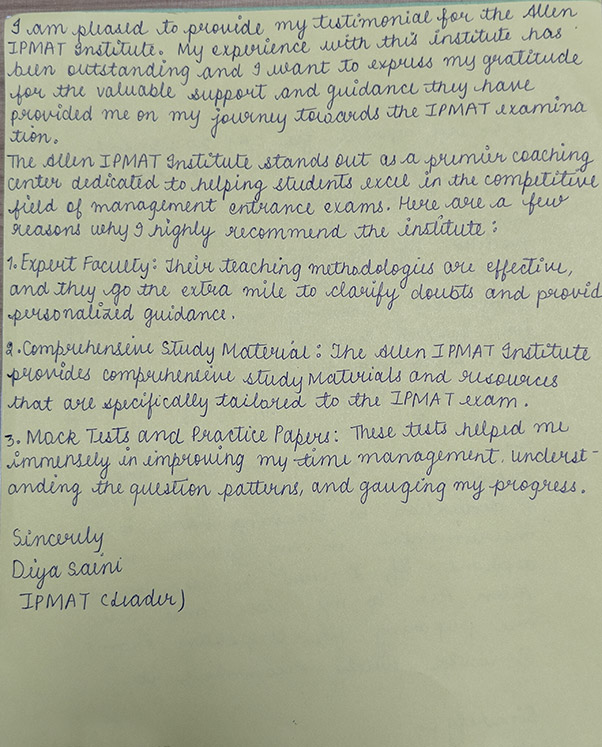 I am pleased to provide my testimonial for the Allen
IPMAT Institute. My experience with this institute has
been outstanding and I want to express my gratitude
for the valuable support and guidance they have
provided me on my journey towards the IPMAT examina
tion.
The Allen IPMAT Institute stands out as a premier coaching
center dedicated to helping students excel in the competitive
field of management entrance exams. Here are a few
reasons why I highly recommend the institute:
1. Expert Faculty: Their teaching methodologies are effective,
and they go the extra mile to clarify doubts and provid
personalized guidance.
2. Comprehensive Study Material: The Allen IPMAT Institute
provides comprehensive study Materials and resources
that are specifically tailored to the IPMAT exam.
3. Mock Tests and Practice Papers: These tests helped me
immensely in improving my time management, underst-
anding the question patterns, and gauging my progress.
Sincerely
Diya Saini
IPMAT (Leader)